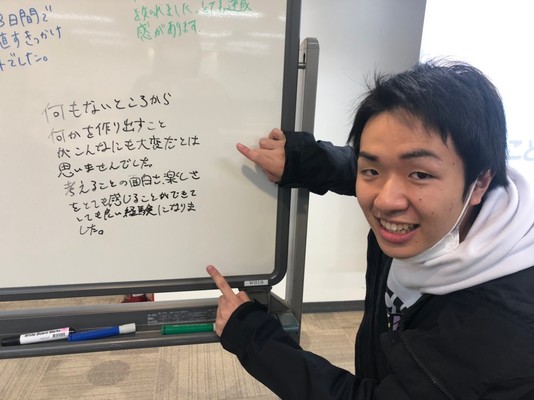 3日間で
直すきっかけ
でした。
されました。とても達成
感があります。
何もないところから
何かを作り出すこと
がこんなにも大変だとは
思いませんでした。
考えることの面白さ、楽しさ
をとても感じることができて
とても良い経験になりま
した。
こと